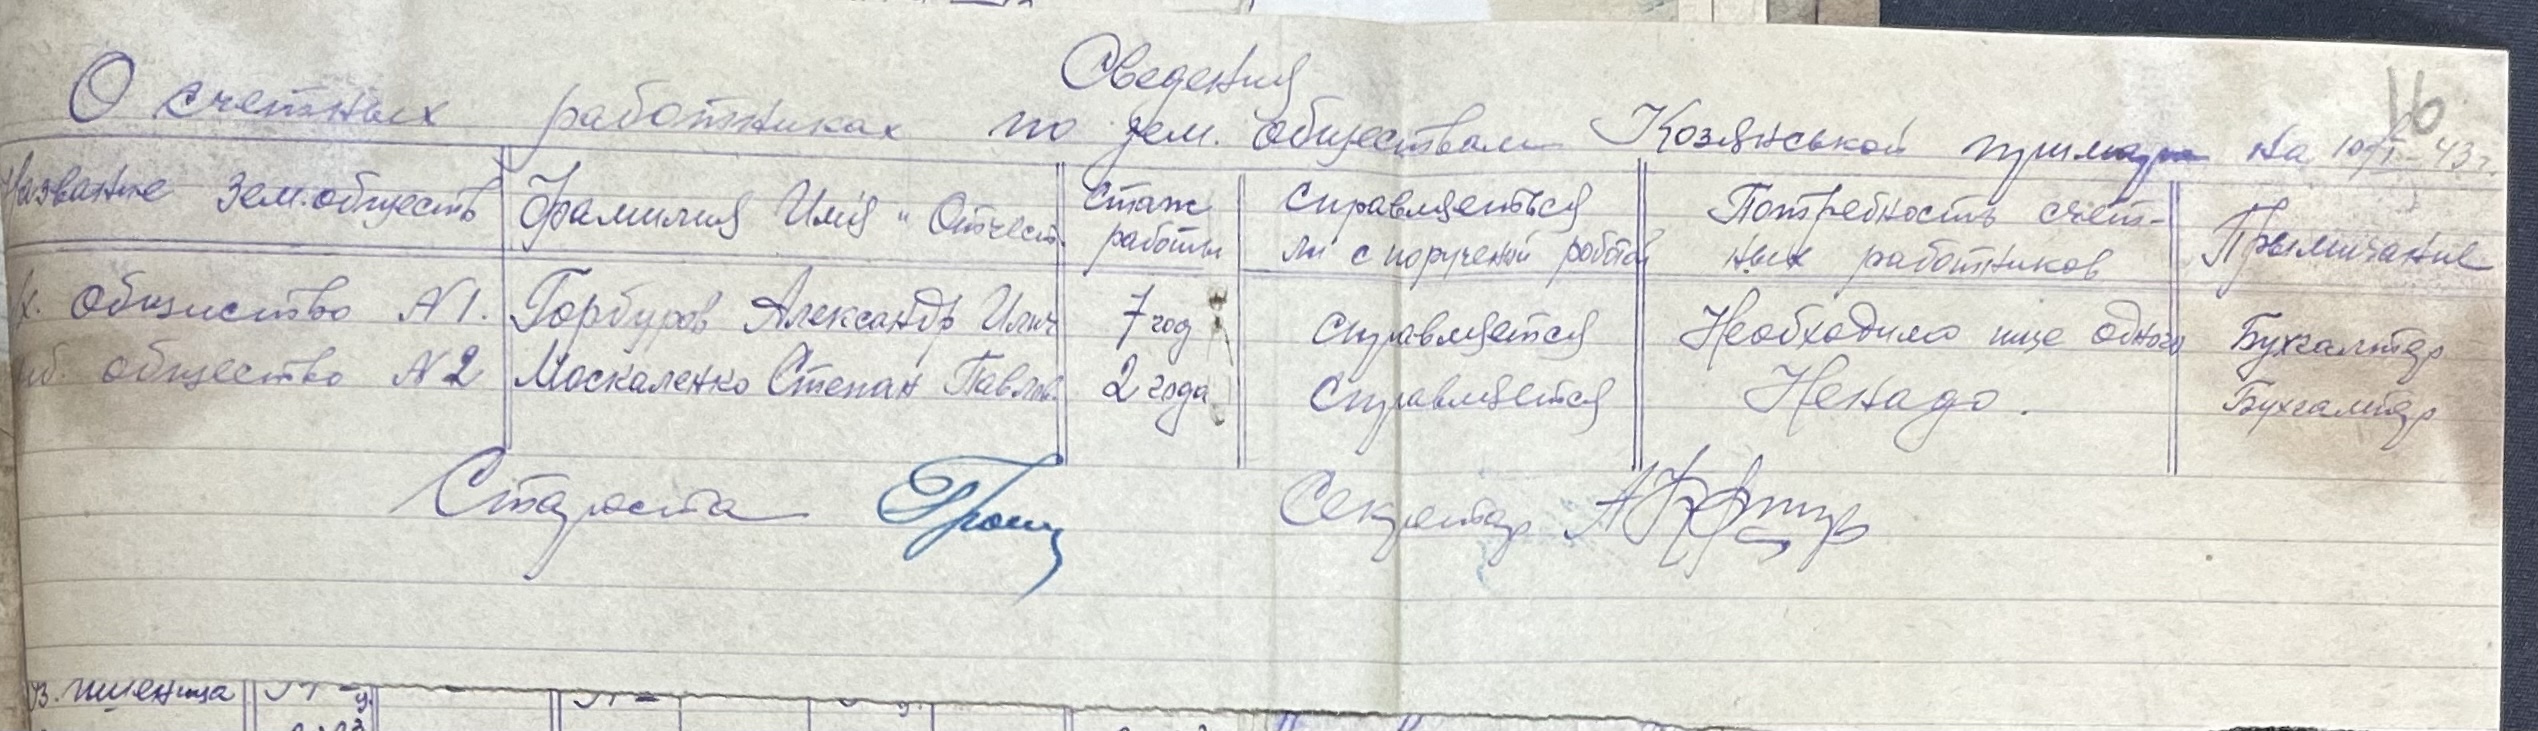 16
Сведения
О счетных работниках по зем. обществам Козянськой примари на 10/I-43 г.
Название зем. обществ Фамилия Имя и Отчест. Стаж работы Справляеться ли с поручений работой Потребность счет-ных работников Прымичание
х. Общиство N1. Горбуров Александр Илич 7 год Справляется Необходимо ище одного Бухгалтер
общество N2 Москаленко Степан Павлов. 2 года Справляется Ненадо. Бухгалтер
Староста Секретар
пшеница